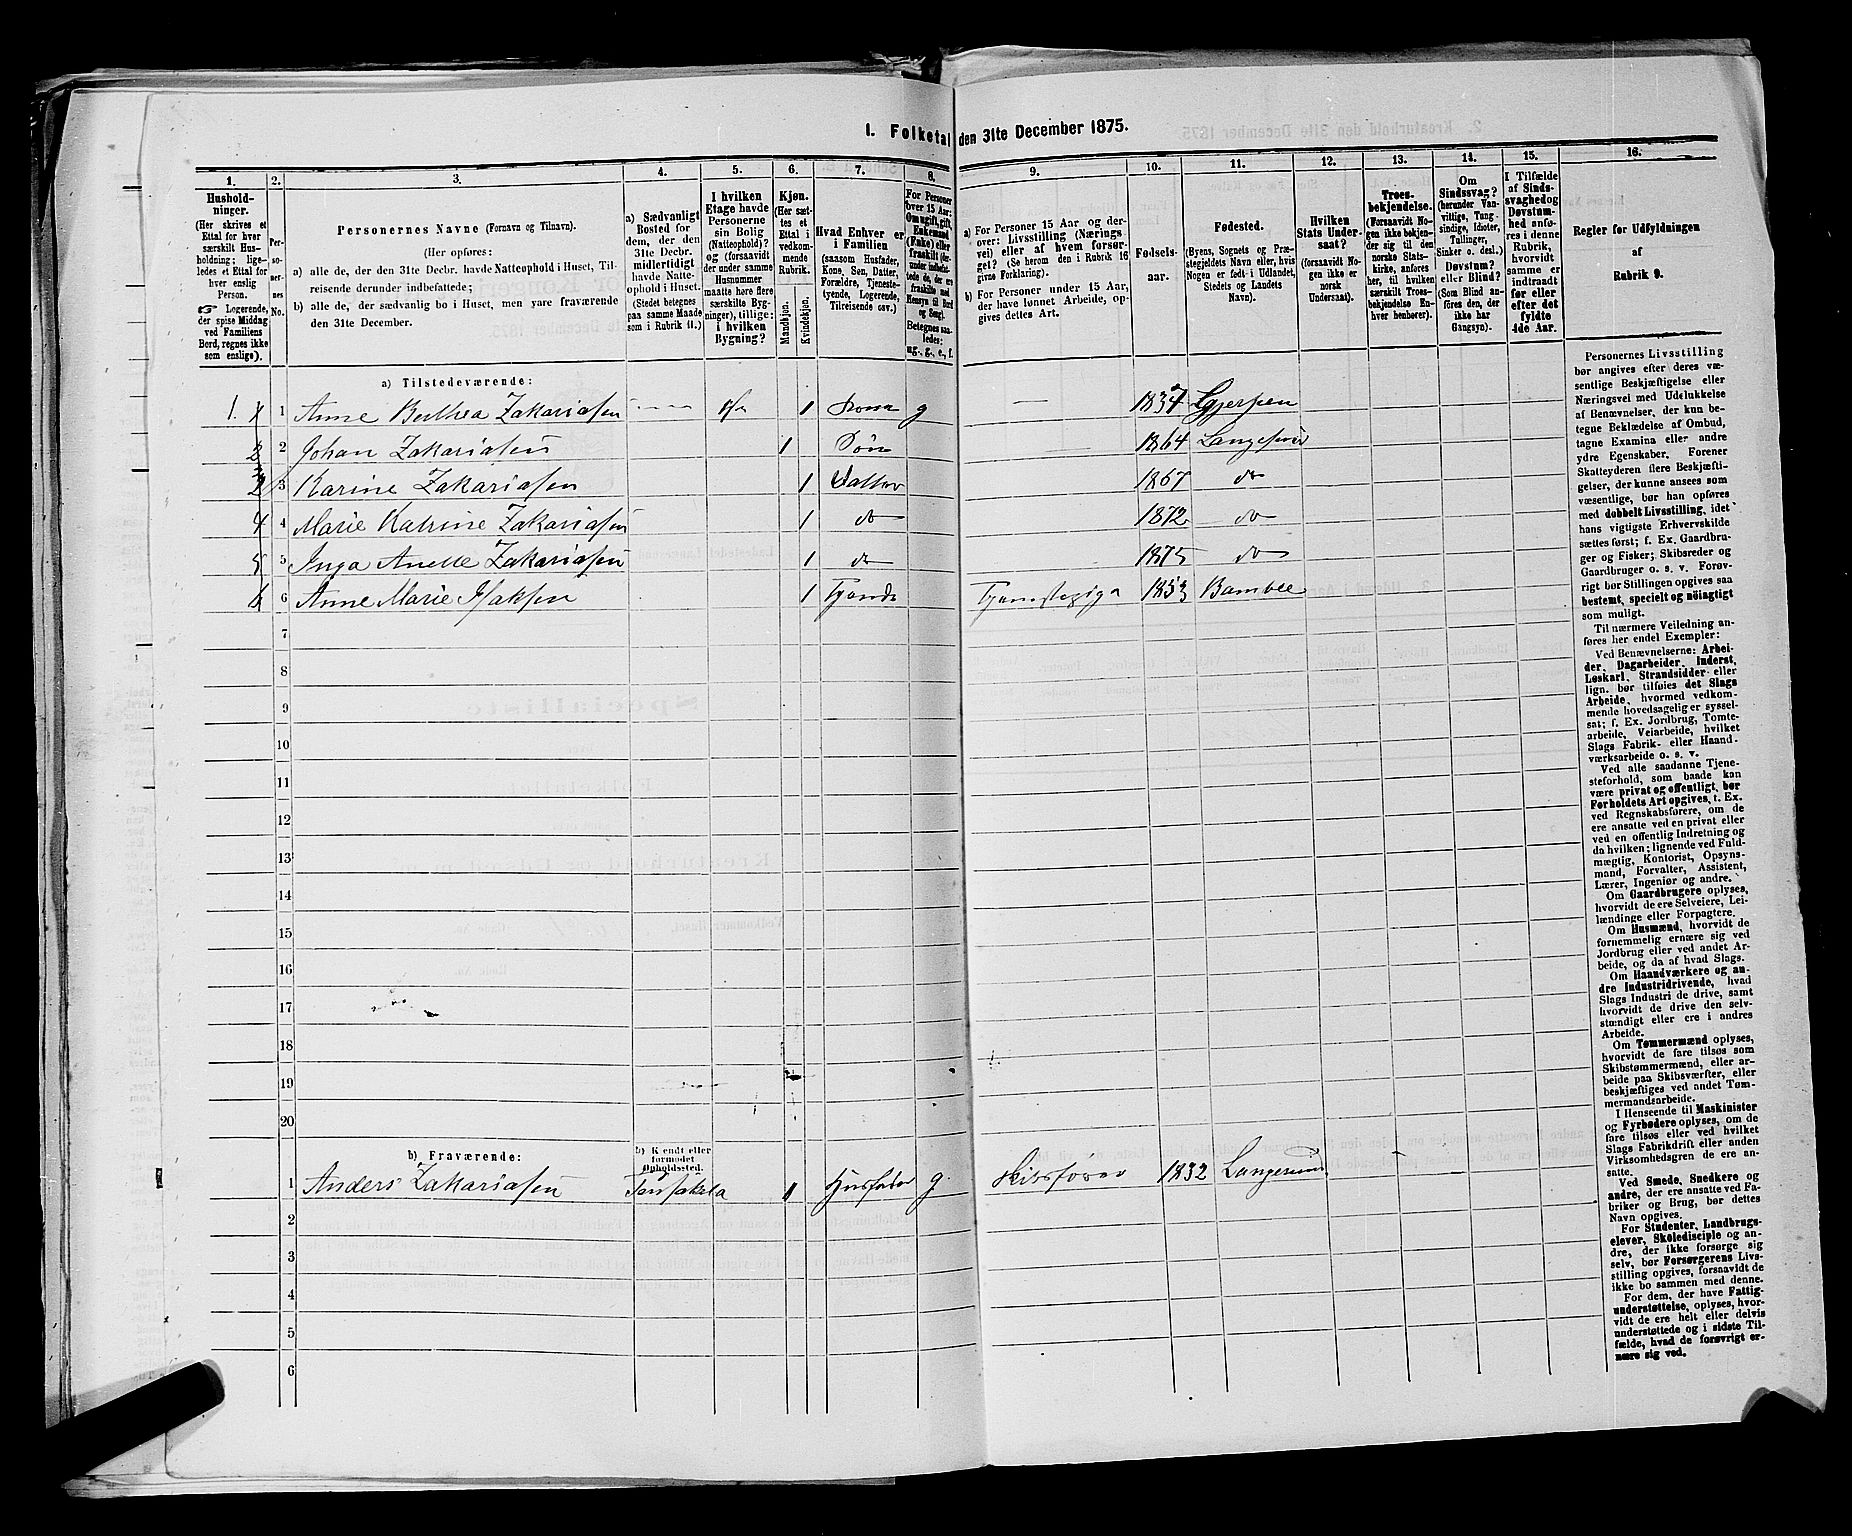 1. Folketal den 31te December 1875.
1. 2. 3. 4. 5. 6. 7. 8. 9. 10. 11. 12. 13. 14. 15. 16.
Hushold-
ninger.
(Her skrives et
Ettal for hver
særskilt Hus-
holdning; lige-
ledes et Ettal for
hver enslig
Person.
☞ Logerende,
der spise Middag
ved Familiens
Bord, regnes ikke
som enslige).
Per-
so-
ner-
nes
No.
Personernes Navne (Fornavn og Tilnavn).
(Her opføres:
a) alle de, der den 31te Decbr. havde Natteophold i Huset, Til-
reisende derunder indbefattede;
b) alle de, der sædvanlig bo i Huset, men vare fraværende
den 31te December.
a) Sædvanligt
Bosted for
dem, der den
31te Decbr.
midlertidigt
havde Natte-
ophold i Huset.
(Stedet betegnes
paa samme Maade
som i Rubrik 11.)
I hvilken
Etage havde
Personerne
sin Bolig
(Natteophold)?
og (forsaavidt
der under samme
Husnummer
maatte høre flere
særskilte Byg-
ninger), tillige:
i hvilken
Bygning?
Kjøn.
(Her sæt-
tes et
Ettal i
vedkom-
mende
Rubrik.
Mandkjøn.
Kvindekjøn.
Hvad Enhver er
i Familien
(saasom Husfader,
Kone, Søn, Datter,
Forældre, Tjeneste-
tyende, Logerende,
Tilreisende osv.)
For Personer
over 15 Aar:
Om ugift, gift,
Enkemand
(Enke) eller
fraskilt (der-
under indbefat-
tede de, der ere
fraskilte med
Hensyn til Bord
og Seng).
Betegnes saa-
ledes:
ug., g., e., f.
a) For Personer 15 Aar og der-
over: Livsstilling (Nærings-
vei) eller af hvem forsør-
get? (Se herom den i Rubrik 16
givne Forklaring).
b) For Personer under 15 Aar,
der have lønnet Arbeide, op-
gives dettes Art.
Fødsels-
aar.
Fødested.
(Byens, Sognets og Præ-
stegjeldets Navn eller, hvis
Nogen er født i Udlandet,
Stedets og Landets
Navn).
Hvilken
Stats Under-
saat?
(forsaavidt No-
gen ikke er
norsk
Undersaat).
Troes-
bekjendelse.
(Forsaavidt No-
gen ikke bekjen-
der sig til den
norske Stats-
kirke, anføres
her, til hvilken
særskilt Troes-
bekjendelse En-
hver henhører).
Om
Sindssvag?
(herunder Van-
vittige, Tung-
sindige, Idioter,
Tullinger,
Sinker o. desl.)
Døvstum?
eller Blind?
(Som Blind an-
føres den, der
ikke har
Gangsyn).
I Tilfælde
af Sinds-
svaghed og
Døvstum-
hed anfø-
res i denne
Rubrik,
hvorvidt
samme er
indtraadt
før eller
efter det
fyldte
4de Aar.
Regler for Udfyldningen
af
Rubrik 9.
a) Tilstedeværende:
1. 1 1 Anne Berthea Zakariasen 1 Kone g 1837 Gjerpen
2 2 Johan Zakariasen 1 Søn 1864 Langesund
3 3 Karine Zakariasen 1 Datter 1867 do
4 4 Marie Katrine Zakariasen 1 do 1872 do
5 5 Inga Anette Zakariasen 1 do 1875 do
6 6 Anne Marie Isaksen 1 Tjenestepige 1853 Bamble
7
8
9
10
11
12
13
14
15
16
17
18
19
20
b) Fraværende:
b) Kjendt eller
formodet
Opholdssted.
1 Anders Zakariasen 1 Husfader g Skibsfører 1832 Langesund
2
3
4
5
6
Personernes Livsstilling
bør angives efter deres væ-
sentlige Beskjæftigelse eller
Næringsvei med Udelukkelse
af Benævnelser, der kun be-
tegne Beklædelse af Ombud,
tagne Examina eller andre
ydre Egenskaber. Forener
Skatteyderen flere Beskjæfti-
gelser, der kunne ansees som
væsentlige, bør han opføres
med dobbelt Livsstilling, idet
hans vigtigste Erhvervskilde
sættes først; f. Ex. Gaardbru-
ger og Fisker; Skibsreder og
Gaardbruger o. s. v. Forøv-
rigt bør Stillingen opgives saa
bestemt, specielt og nøiagtigt
som muligt.
Til nærmere Veiledning an-
føres her endel Exempler:
Ved Benævnelserne: Arbei-
der, Dagarbeider, Inderst,
Løskarl, Strandsidder eller
lign. bør tilføies det Slags
Arbeide, hvormed vedkom-
mende hovedsagelig er syssel-
sat; f. Ex. Jordbrug, Tomte-
arbeide, Veiarbeide, hvilket
Slags Fabrik- eller Haand-
værksarbeide o. s. v.
Ved alle saadanne Tjene-
steforhold, som baade kan
være privat og offentligt, bør
Forholdets Art opgives, t. Ex.
ved Regnskabsførere, om de
ere ansatte ved en privat eller
ved en offentlig Indretning og
da hvilken; lignende ved Fuld-
mægtig, Kontorist, Opsyns-
mand, Forvalter, Assistent,
Lærer, Ingeniør og andre.
Om Gaardbrugere oplyses,
hvorvidt de ere Selveiere, Lei-
lændinge eller Forpagtere.
Om Husmænd, hvorvidt de
fornemmelig ernære sig ved
Jordbrug eller ved andet Ar-
beide, og da af hvad Slags.
Om Haandværkere og an-
dre Industridrivende, hvad
Slags Industri de drive, samt
hvorvidt de drive den selv-
stændigt eller ere i andres
Arbeide.
Om Tømmermænd oplyses,
hvorvidt de fare tilsøs som
Skibstømmermænd, eller ar-
beide paa Skibsværfter, eller
beskjæftiges ved andet Tøm-
mermandsarbeide.
I Henseende til Maskinister
og Fyrbødere oplyses, om de
fare tilsøs eller ved hvilket
Slags Fabrikdrift eller anden
Virksomhedsgren de ere an-
satte.
Ved Smede, Snedkere og
andre, der ere ansatte ved Fa-
briker og Brug, bør dettes
Navn opgives.
For Studenter, Landbrugs-
elever, Skoledisciple og an-
dre, der ikke forsørge sig
selv, bør Forsørgerens Livs-
stilling opgives, forsaavidt de
ikke bo sammen med denne.
For dem, der have Fattig-
understøttelse, oplyses, hvor-
vidt de ere helt eller delvis
understøttede og i sidste Til-
fælde, hvad de forøvrigt er-
nære sig ved.